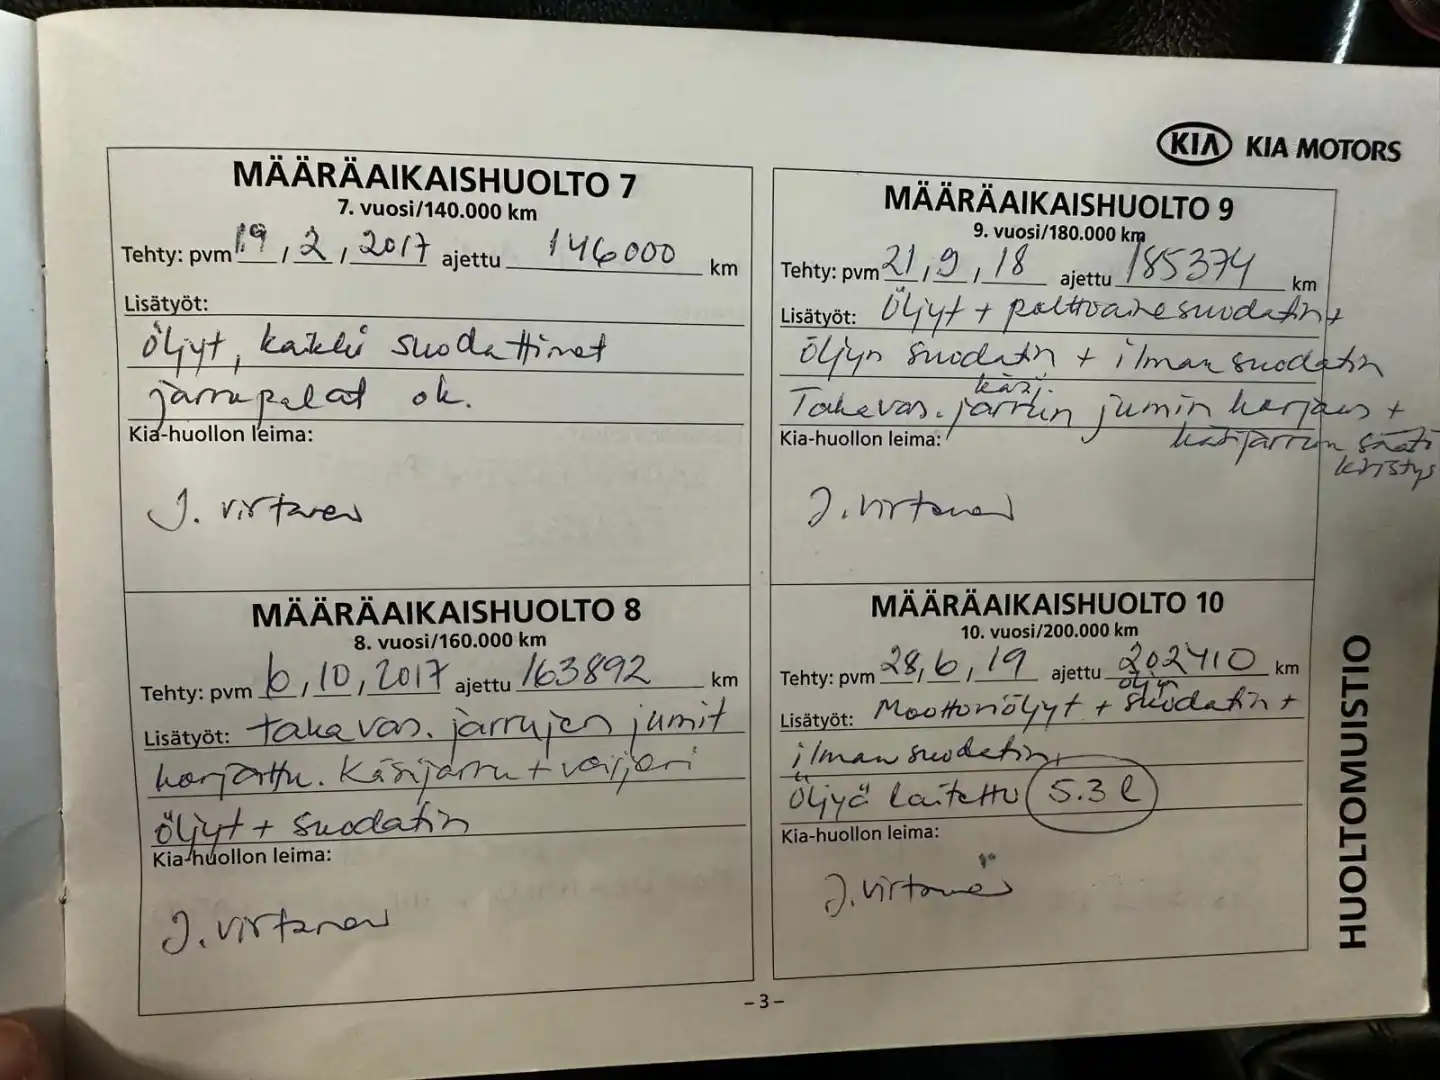 KIA KIA MOTORS
MÄÄRÄAIKAISHUOLTO 7
7. vuosi/140.000 km
Tehty: pvm 19, 2, 2017 ajettu 146000 km
Lisätyöt:
öljyt, kaikki suodattimet
jarrupalat ok.
Kia-huollon leima:
J. Virtanen
MÄÄRÄAIKAISHUOLTO 8
8. vuosi/160.000 km
Tehty: pvm 6, 10, 2017 ajettu 163892 km
Lisätyöt: takavas. jarrujen jumit
korjattu. Käsijarru + vaijeri
öljyt + suodatin
Kia-huollon leima:
J. Virtanen
MÄÄRÄAIKAISHUOLTO 9
9. vuosi/180.000 km
Tehty: pvm 21, 9, 18 ajettu 185374 km
Lisätyöt: Öljyt + polttoainesuodatin +
öljyn suodatin + ilman suodatin
Takavas. käsi. jarrun jumin korjaus +
käsijarrun säätö
kiristys
Kia-huollon leima:
J. Virtanen
MÄÄRÄAIKAISHUOLTO 10
10. vuosi/200.000 km
Tehty: pvm 28, 6, 19 ajettu 202410 km
Lisätyöt: Moottoriöljyt + öljyn suodatin +
ilman suodatin,
Öljyä laitettu 5.3 l
Kia-huollon leima:
J. Virtanen
HUOLTOMUISTIO
– 3 –